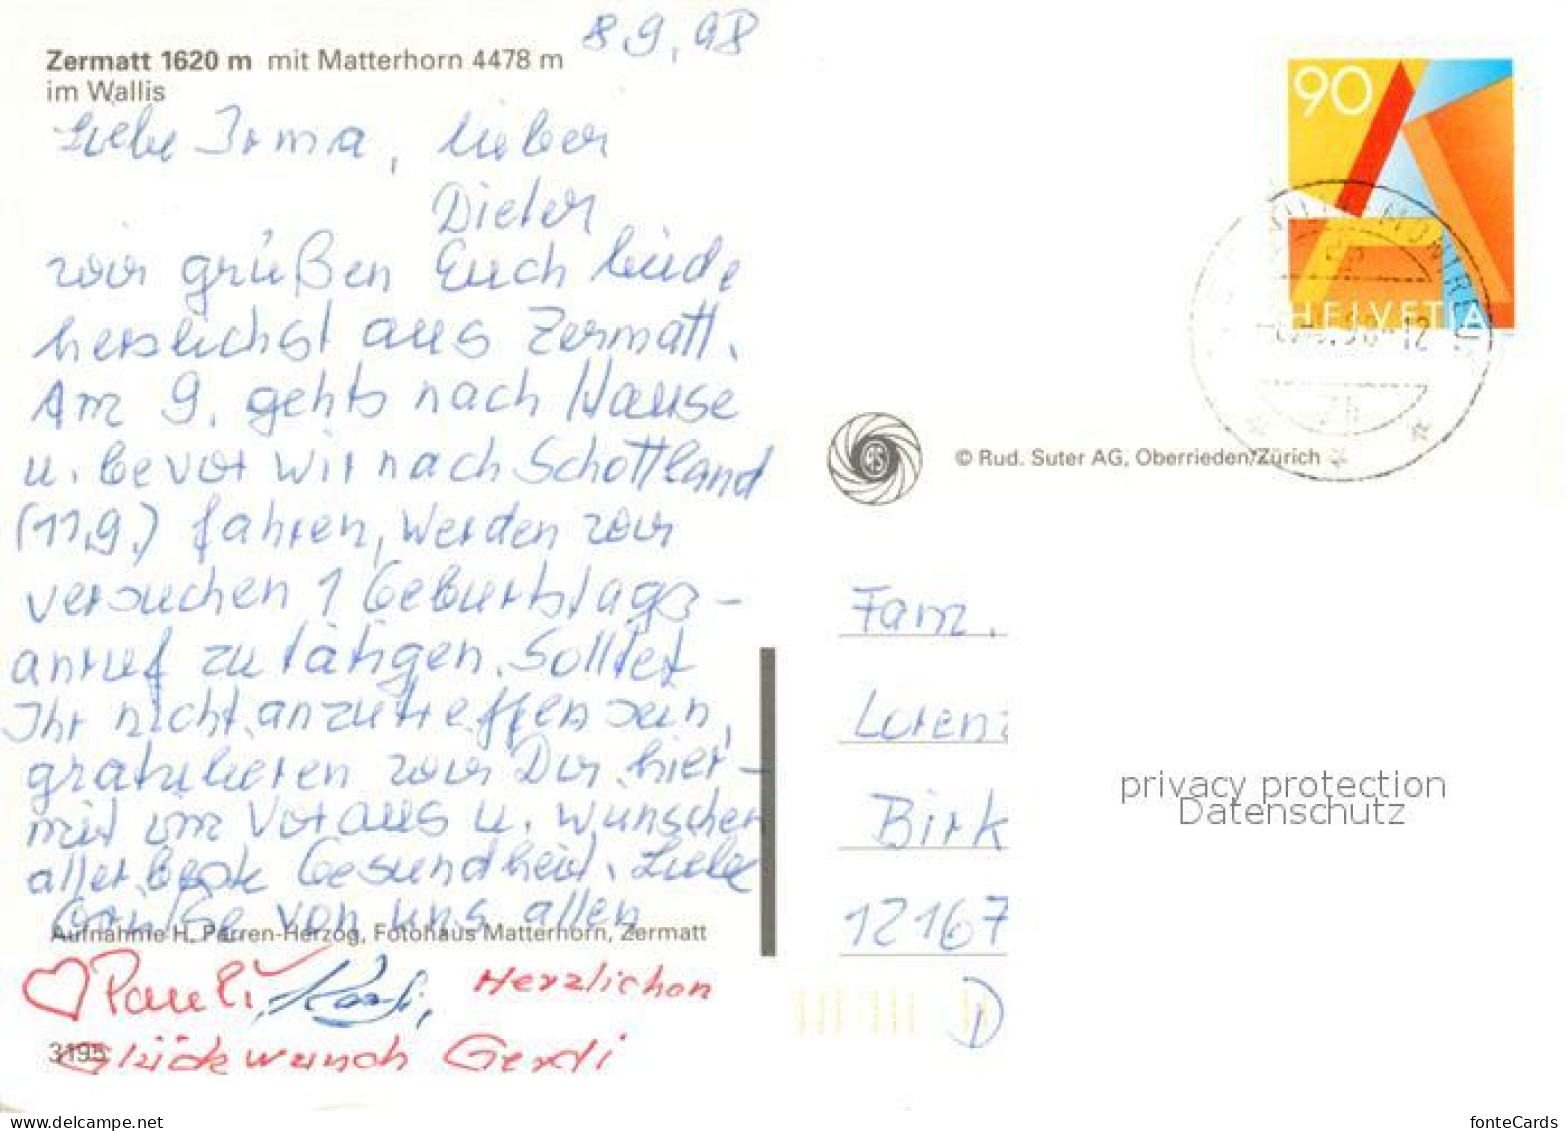 8.9.98
Zermatt 1620 m mit Matterhorn 4478 m
im Wallis
Liebe Irma, lieber
Dieter
wir grüßen Euch beide
herzlichst aus Zermatt.
Am 9. gehts nach Hause
u. bevor wir nach Schottland
(11.9.) fahren, werden wir
versuchen 1 Geburtstags-
anruf zu tätigen. Solltet
Ihr nicht anzutreffen sein,
gratulieren wir Dir hier-
mit im Voraus u. wünschen
aller beste Gesundheit. Liebe
Grüße von uns allen
Aufnahme H. Perren-Herzog, Fotohaus Matterhorn, Zermatt
Pauli, Karli, Herzlichen
3195
Glückwunsch Gerdi
90
HELVETIA
© Rud. Suter AG, Oberrieden/Zürich
Fam.
Lorenz
Birk
12167
D
privacy protection
Datenschutz
www.delcampe.net
fonteCards